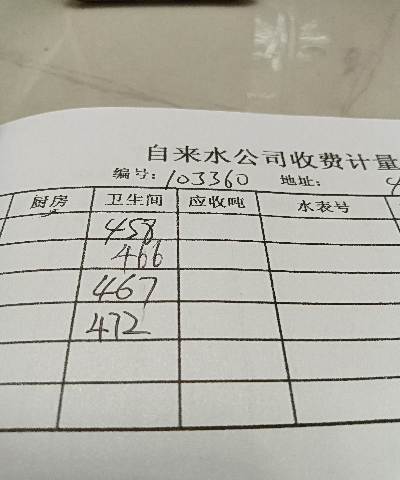 自来水公司收费计量
编号: 103360 地址:
厨房 卫生间 应收吨 水表号
458
466
467
472